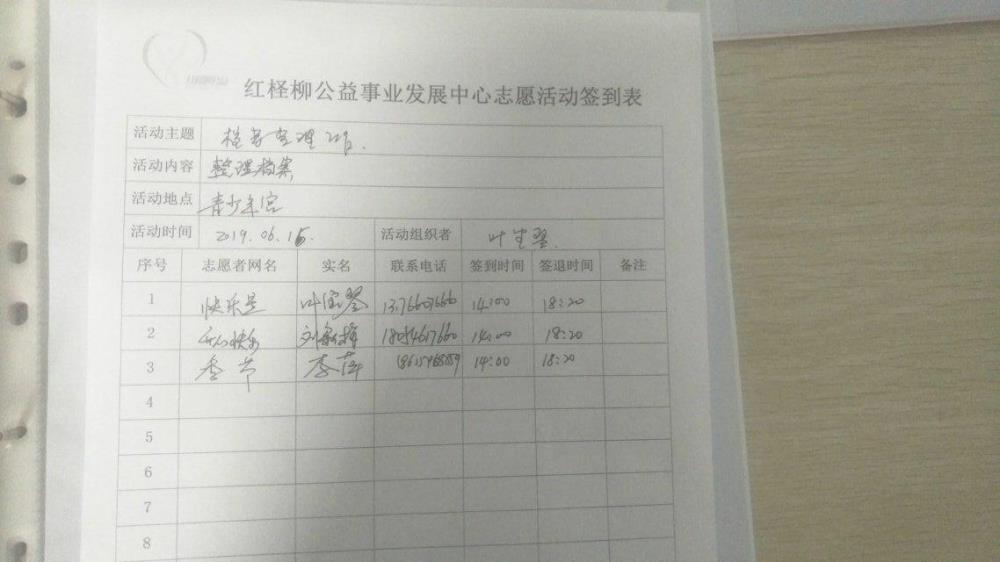 红柽柳公益事业发展中心志愿活动签到表
活动主题 档案整理
活动内容 整理档案
活动地点 青少年宫
活动时间 2019.06.15. 活动组织者 叶
序号 志愿者网名 实名 联系电话 签到时间 签退时间 备注
1 快乐是 叶 14:00 18:20
2 快乐 刘 14:00 18:20
3 季节 李萍 14:00 18:20
4
5
6
7
8